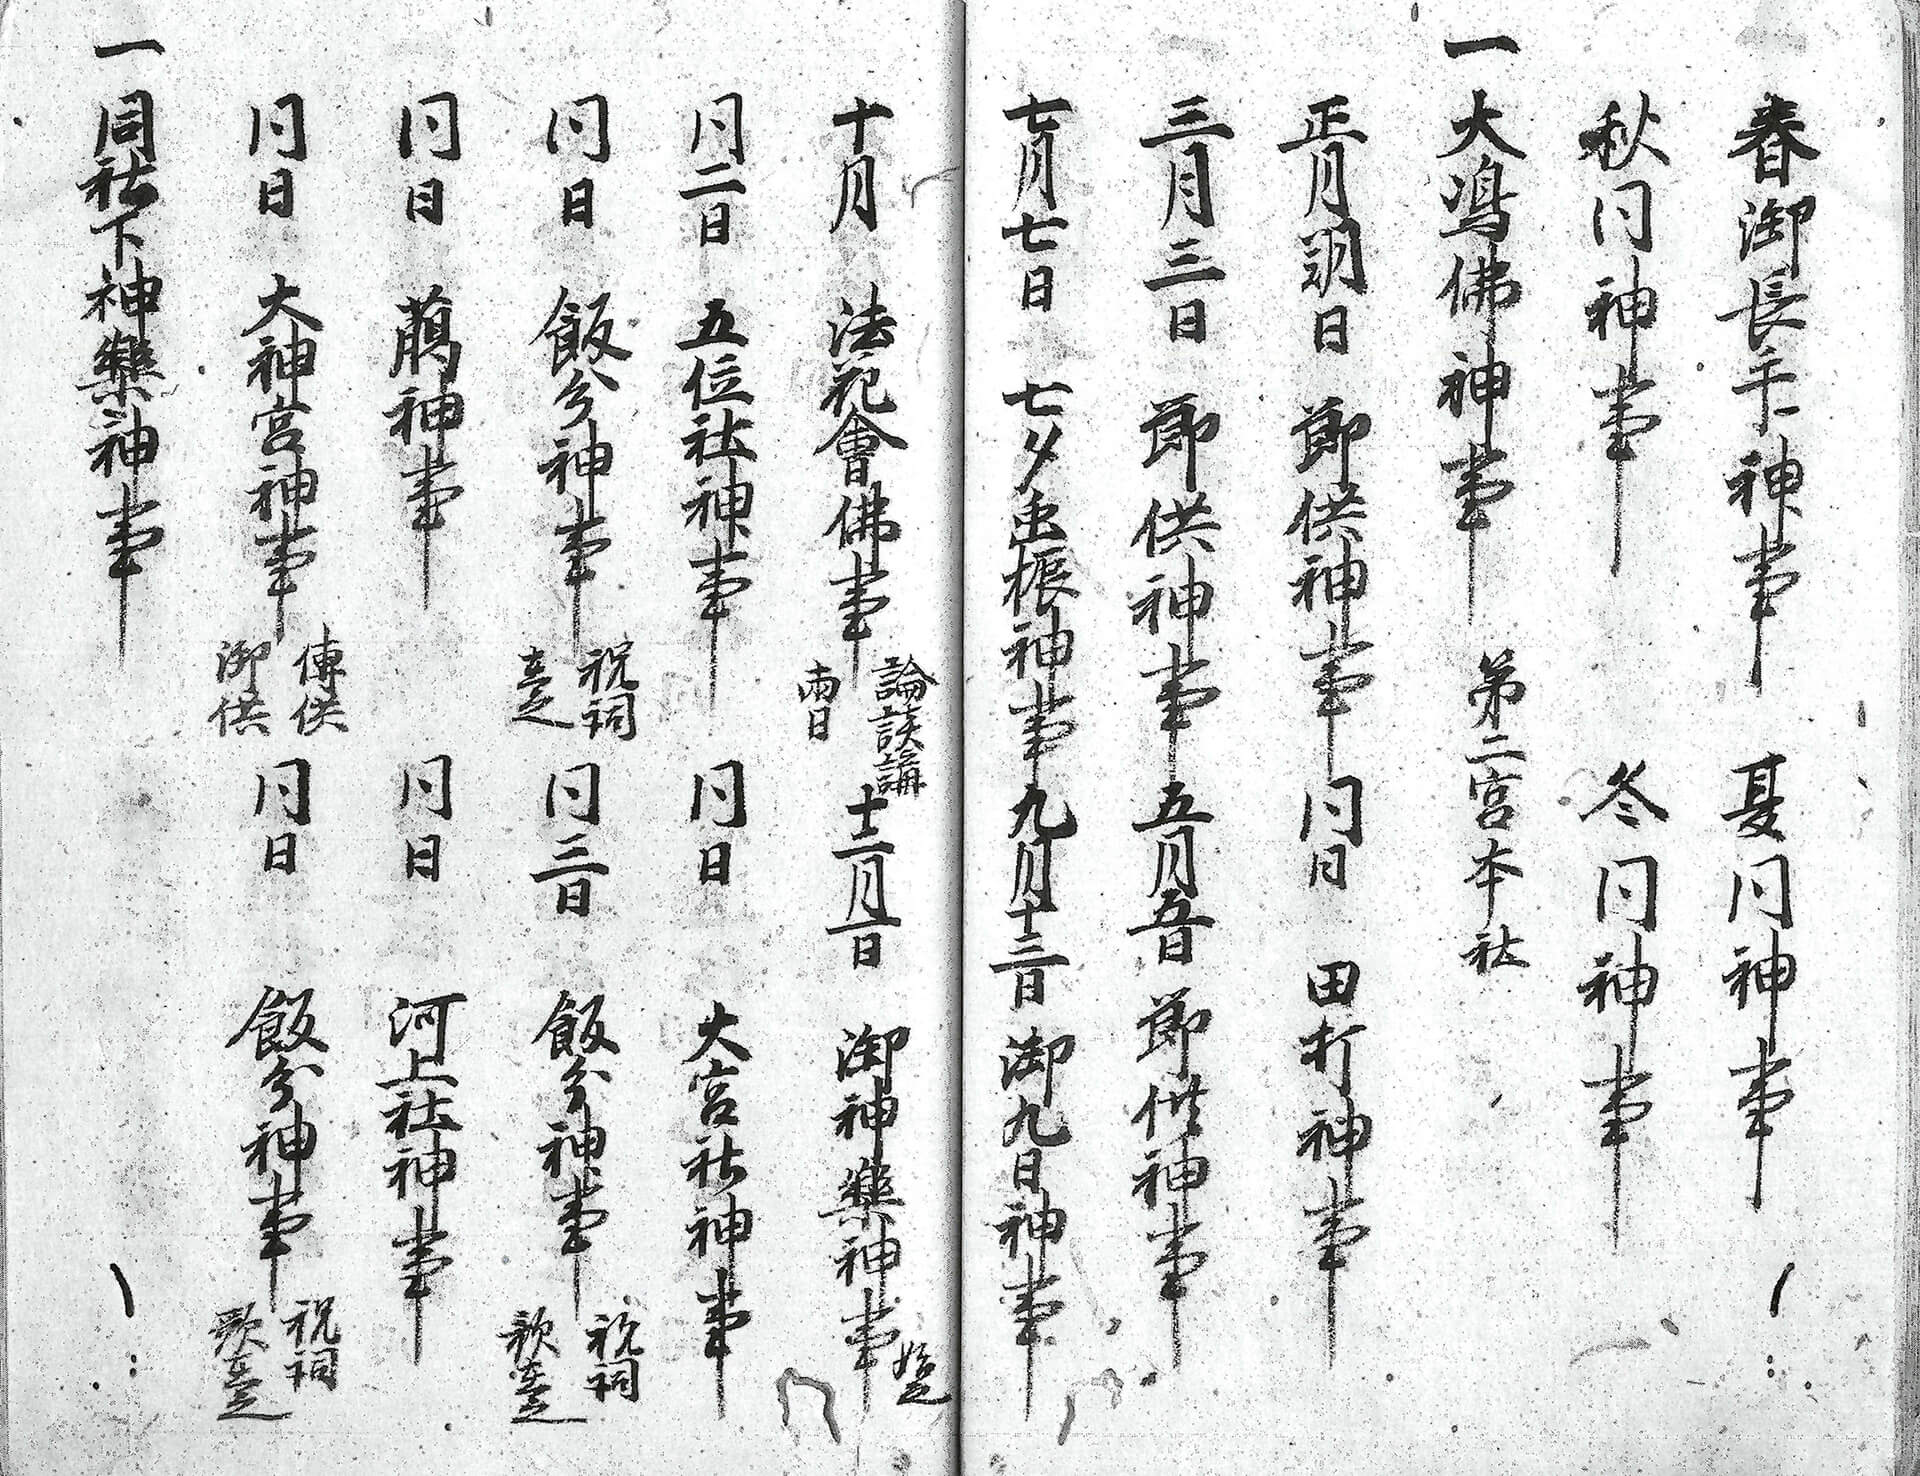 春御長手神事　夏同神事
秋同神事　冬同神事
一　大嶋佛神事　第二宮本社
正月朔日　節供神事　同日　田打神事
三月三日　節供神事　五月五日　節供神事
七月七日　七夕虫振神事　九月十三日　御九日神事
十月　法花會佛事　論談講　両日　十二月一日　御神楽神事　始之
同二日　五位社神事　同日　大宮社神事
同日　飯分神事　祝詞　立之　同三日　飯分神事　祝詞　歌立之
同日　神事　同日　河上社神事
同日　大神宮神事　傳供　御供　同日　飯分神事　祝詞　歌立之
一　同社下神楽神事